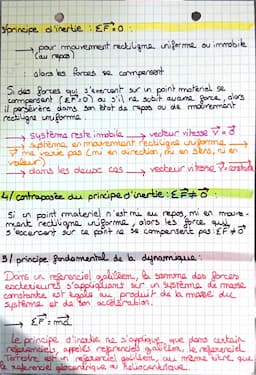 3/principe d'inertie : ΣF⃗=0⃗ :
→ pour mouvement rectiligne uniforme ou immobile
(au repos)
: alors les forces se compensent
Si des forces qui s'exercent sur un point matériel se
compensent (ΣF⃗=0⃗) ou s'il ne subit aucune force, alors
il persévère dans son état de repos ou de mouvement
rectiligne uniforme.
→ système reste immobile → vecteur vitesse v⃗ = 0⃗
→ système en mouvement rectiligne uniforme →
v⃗ ne varie pas (ni en direction, ni en sens, ni en
valeur)
→ dans les deux cas → vecteur vitesse v⃗=constant
4/ contraposée du principe d'inertie : ΣF⃗ ≠ 0⃗
Si un point matériel n'est ni au repos, ni en mouve-
ment rectiligne uniforme, alors les forces qui
s'exercent sur ce point ne se compensent pas : ΣF⃗ ≠ 0⃗
5/ principe fondamental de la dynamique :
Dans un référenciel galiléen, la somme des forces
extérieures s'appliquant sur un système de masse
constante est égale au produit de la masse du
système et de son accélération.
→ ΣF⃗ = ma⃗
Le principe d'inertie ne s'applique que dans certain
référenciels, appelés référenciels galiléen, le référenciel
Terrestre est un référenciel galiléen, au même titre que
le référenciel géocentrique ou héliocentrique.